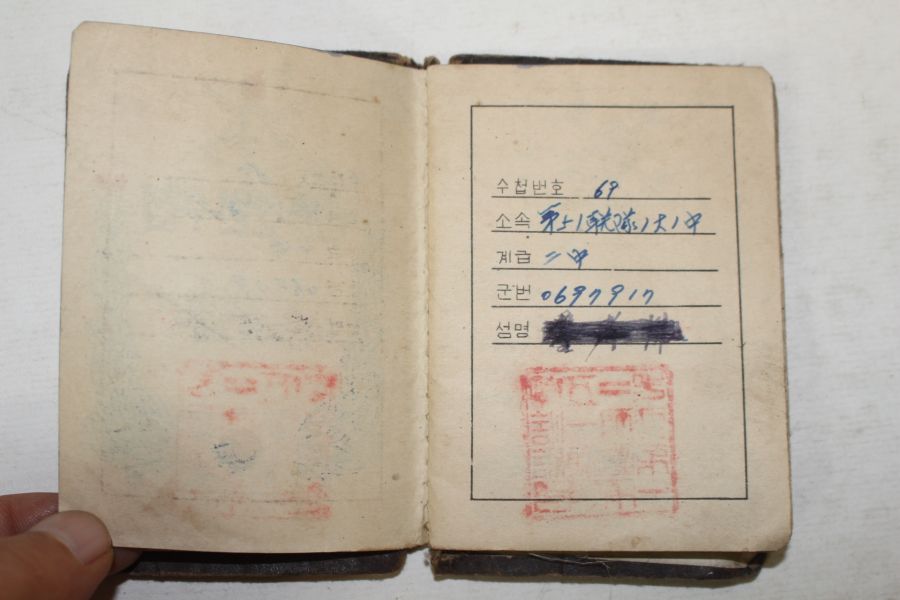 수첩번호 69
소속 第51聯隊1大1中
계급 二中
군번 0697917
성명